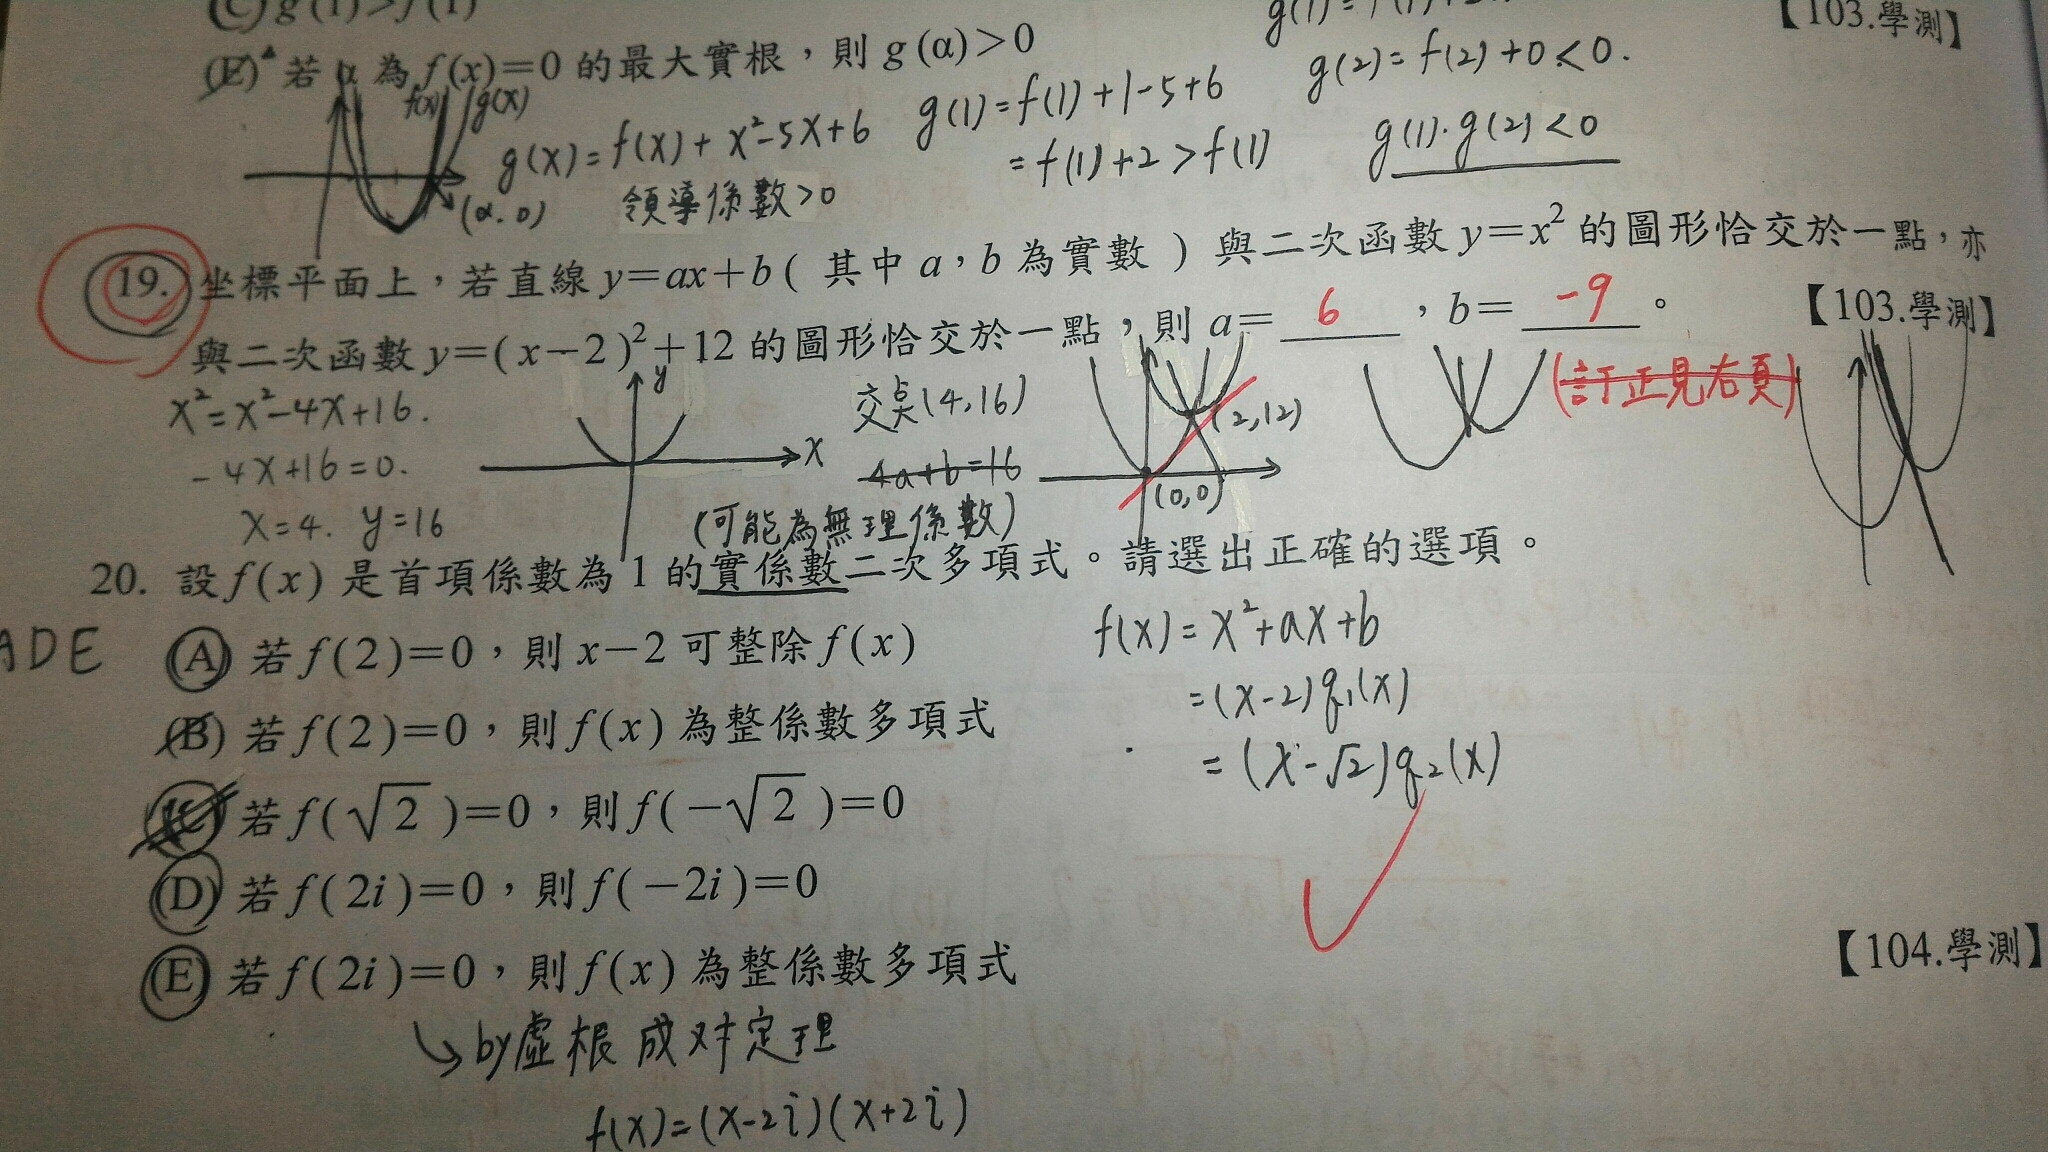 (C) g(1)>f(1)
g(1)=f(1)+2
【103.學測】
(E)▲若 α 為 f(x)=0 的最大實根，則 g(α)>0
g(2)=f(2)+0<0.
f(x) g(x)
g(x)=f(x)+x²-5x+6
g(1)=f(1)+1-5+6
=f(1)+2>f(1)
g(1)·g(2)<0
(α.0)
領導係數>0
19. 坐標平面上，若直線 y=ax+b ( 其中 a，b 為實數 ) 與二次函數 y=x² 的圖形恰交於一點，亦
與二次函數 y=(x-2)²+12 的圖形恰交於一點，則 a= 6 ，b= -9 。
【103.學測】
(訂正見右頁)
x²=x²-4x+16.
-4x+16=0.
x=4. y=16
y
x
交点(4,16)
4a+b=16
(可能為無理係數)
(2,12)
(0,0)
20. 設 f(x) 是首項係數為 1 的實係數二次多項式。請選出正確的選項。
ADE
(A) 若 f(2)=0，則 x-2 可整除 f(x)
(B) 若 f(2)=0，則 f(x) 為整係數多項式
(C) 若 f(√2)=0，則 f(-√2)=0
(D) 若 f(2i)=0，則 f(-2i)=0
(E) 若 f(2i)=0，則 f(x) 為整係數多項式
【104.學測】
f(x)=x²+ax+b
=(x-2)q₁(x)
=(x-√2)q₂(x)
↳by虛根成对定理
f(x)=(x-2i)(x+2i)